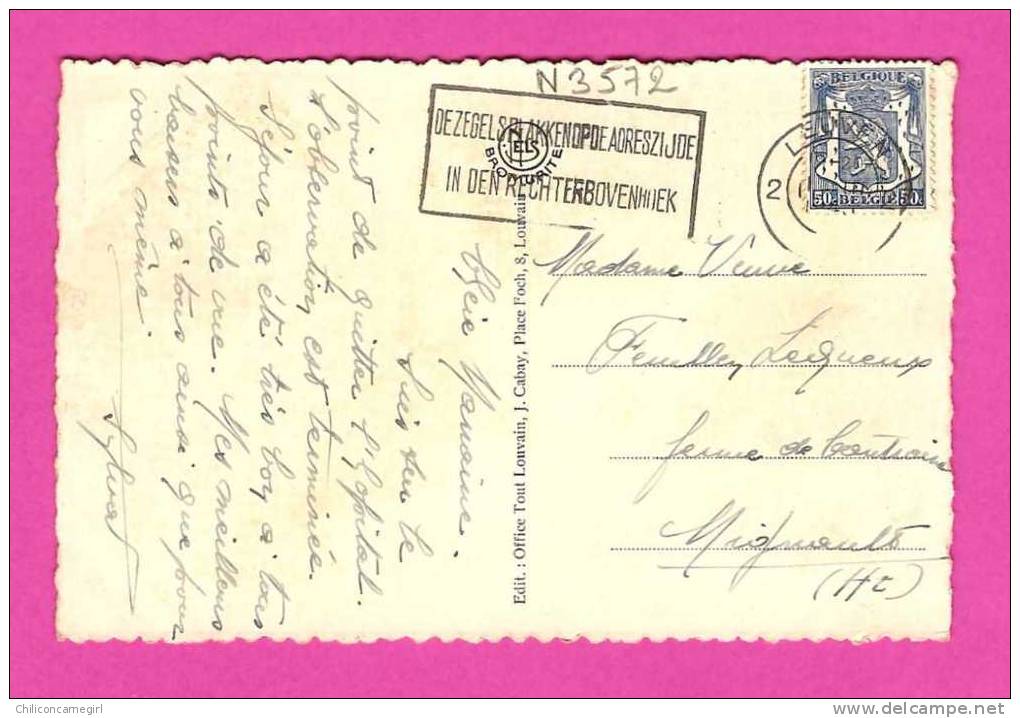 N3572
DE ZEGELS PLAKKEN OP DE ADRESZIJDE
IN DEN RECHTERBOVENHOEK
NELS
BROMURITE
BELGIQUE
50c BELGIE 50c
LEUVEN
2
Chère Marraine.
Suis sur le
point de quitter l'hôpital.
L'observation est terminée.
Séjour a été très bon à tous
points de vue. Mes meilleurs
baisers à tous ainsi que pour
vous même.
Edit. : Office Tout Louvain, J. Cabay, Place Foch, 8, Louvain
Madame Veuve
Lecqueux
ferme de
Mignault
(Ht)
Chiliconcarnegirl
www.delcampe.net